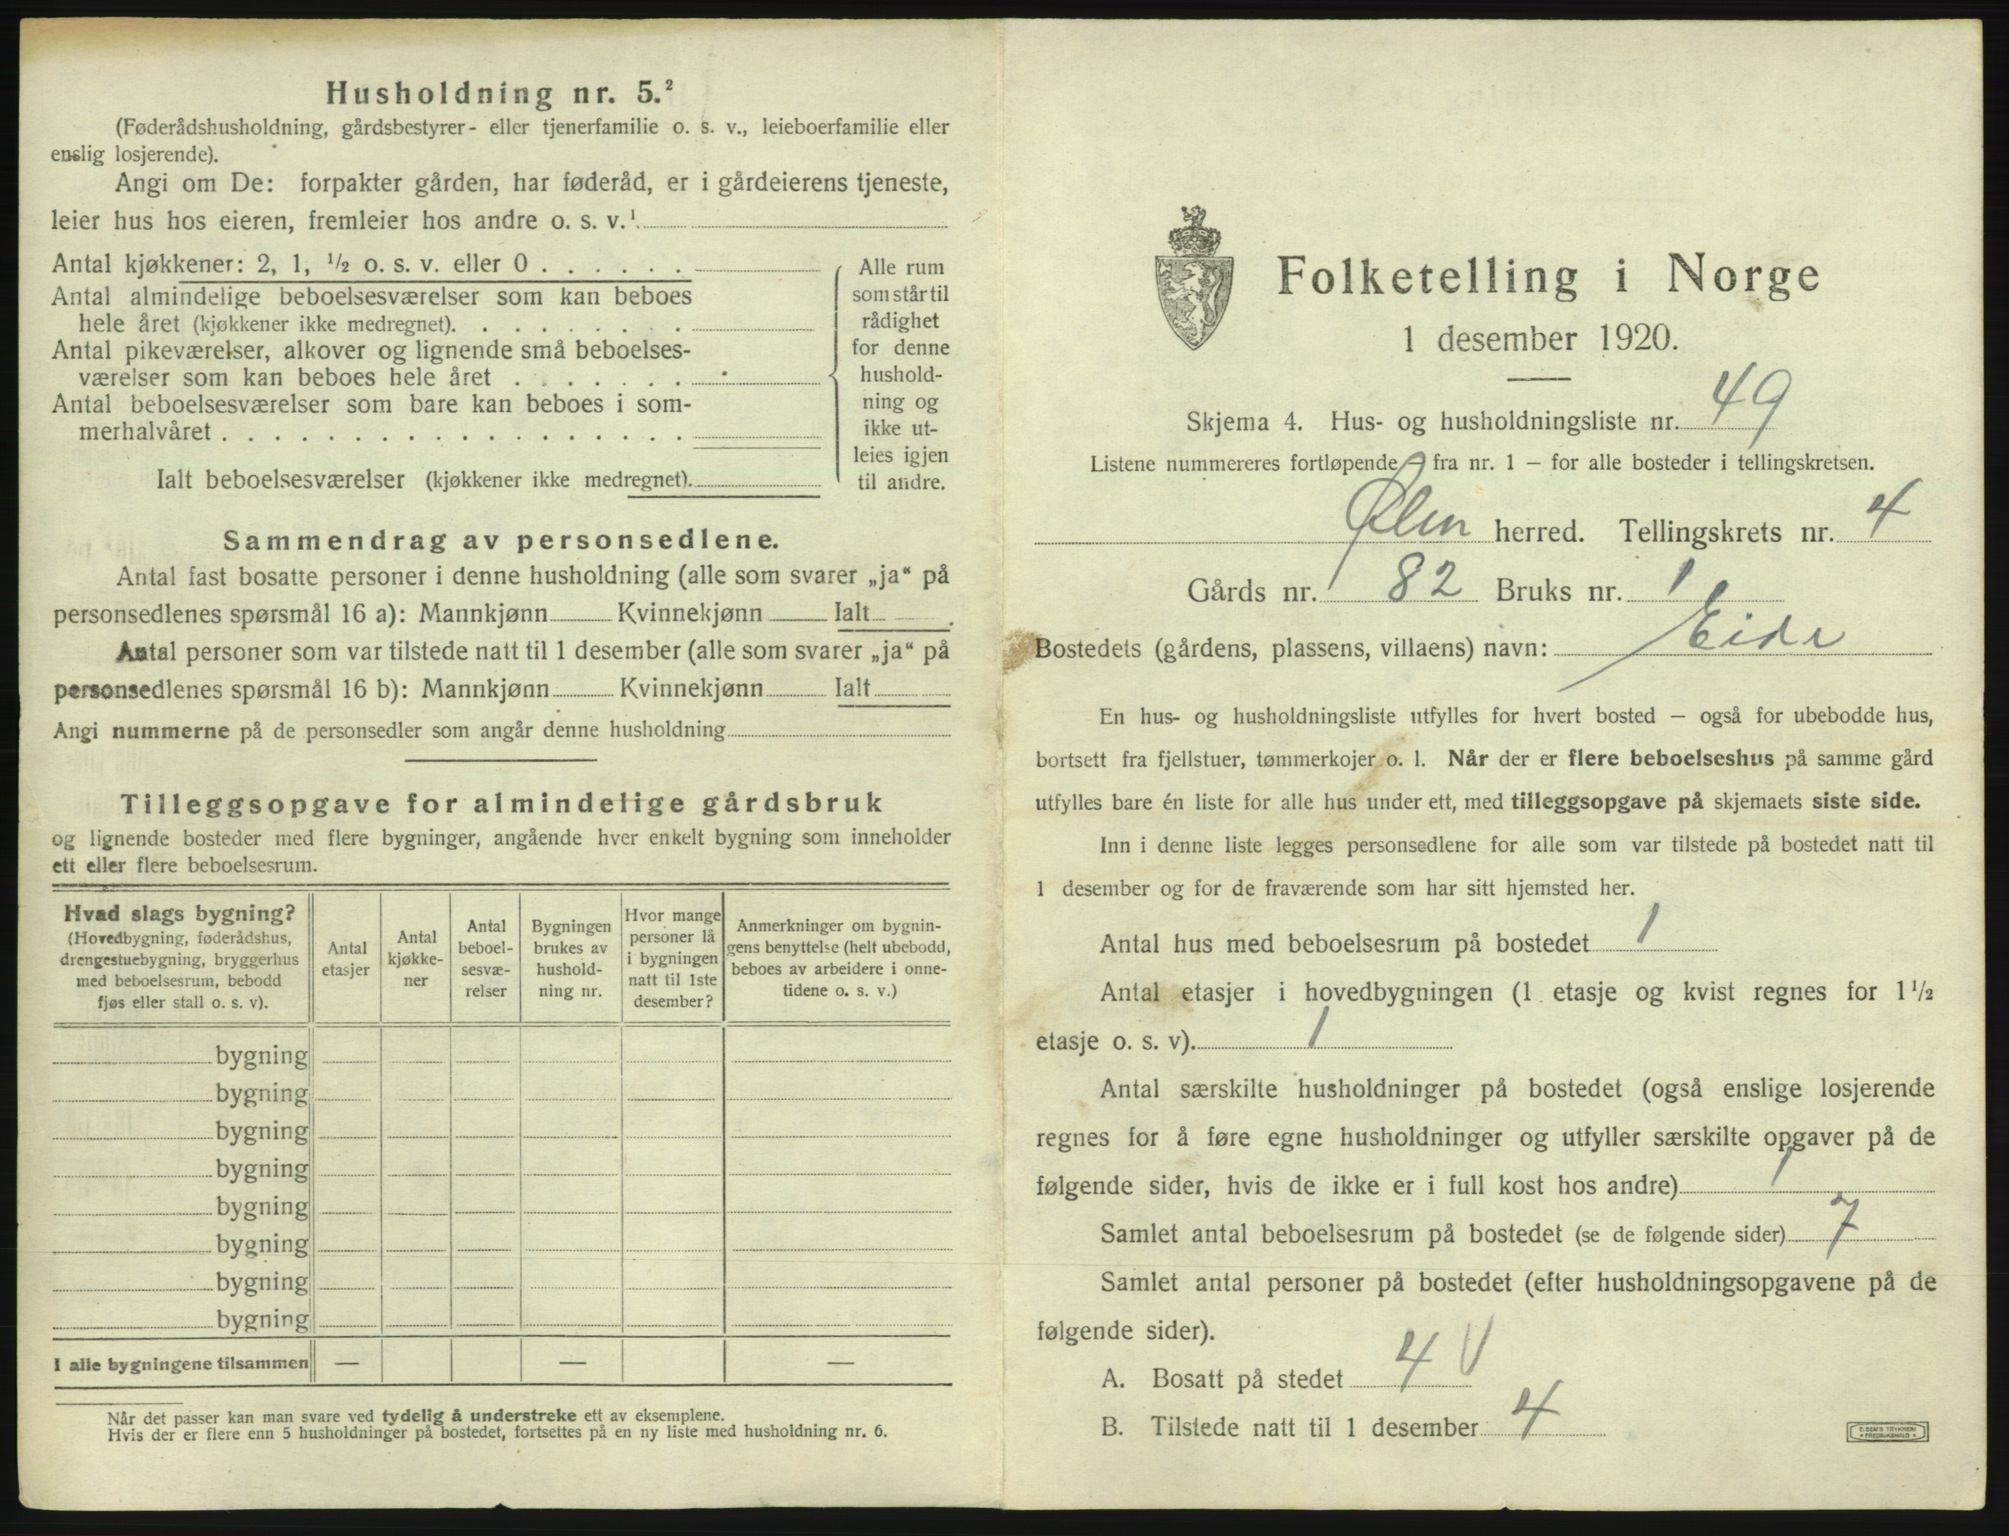 Husholdning nr. 5.²
(Føderådshusholdning, gårdsbestyrer- eller tjenerfamilie o. s. v., leieboerfamilie eller
enslig losjerende).
Angi om De: forpakter gården, har føderåd, er i gårdeierens tjeneste,
leier hus hos eieren, fremleier hos andre o. s. v.¹
Antal kjøkkener: 2, 1, ½ o. s. v. eller 0 . . . . . .
Antal almindelige beboelsesværelser som kan beboes
hele året (kjøkkener ikke medregnet). . . . . . . . .
Antal pikeværelser, alkover og lignende små beboelses-
værelser som kan beboes hele året . . . . . . .
Antal beboelsesværelser som bare kan beboes i som-
merhalvåret . . . . . . . . . . . . . . . . . .
Ialt beboelsesværelser (kjøkkener ikke medregnet).
Alle rum
som står til
rådighet
for denne
hushold-
ning og
ikke ut-
leies igjen
til andre.
Sammendrag av personsedlene.
Antal fast bosatte personer i denne husholdning (alle som svarer „ja“ på
personsedlenes spørsmål 16 a): Mannkjønn Kvinnekjønn Ialt .
Antal personer som var tilstede natt til 1 desember (alle som svarer „ja“ på
personsedlenes spørsmål 16 b): Mannkjønn Kvinnekjønn Ialt
Angi nummerne på de personsedler som angår denne husholdning
Tilleggsopgave for almindelige gårdsbruk
og lignende bosteder med flere bygninger, angående hver enkelt bygning som inneholder
ett eller flere beboelsesrum.
Hvad slags bygning?
(Hovedbygning, føderådshus,
drengestuebygning, bryggerhus
med beboelsesrum, bebodd
fjøs eller stall o. s. v).
Antal
etasjer
Antal
kjøkke-
ner
Antal
beboel-
sesvæ-
relser
Bygningen
brukes av
hushold-
ning nr.
Hvor mange
personer lå
i bygningen
natt til 1ste
desember?
Anmerkninger om bygnin-
gens benyttelse (helt ubebodd,
beboes av arbeidere i onne-
tidene o. s. v.)
bygning
bygning
bygning
bygning
bygning
bygning
bygning
bygning
I alle bygningene tilsammen — — —
Når det passer kan man svare ved tydelig å understreke ett av eksemplene.
Hvis der er flere enn 5 husholdninger på bostedet, fortsettes på en ny liste med husholdning nr. 6.
Folketelling i Norge
1 desember 1920.
Skjema 4. Hus- og husholdningsliste nr. 49
Listene nummereres fortløpende – fra nr. 1 – for alle bosteder i tellingskretsen.
Ølen herred. Tellingskrets nr. 4
Gårds nr. 82 Bruks nr. 1
Bostedets (gårdens, plassens, villaens) navn: Eide
En hus- og husholdningsliste utfylles for hvert bosted – også for ubebodde hus,
bortsett fra fjellstuer, tømmerkojer o. l. Når der er flere beboelseshus på samme gård
utfylles bare én liste for alle hus under ett, med tilleggsopgave på skjemaets siste side.
Inn i denne liste legges personsedlene for alle som var tilstede på bostedet natt til
1 desember og for de fraværende som har sitt hjemsted her.
Antal hus med beboelsesrum på bostedet 1
Antal etasjer i hovedbygningen (1 etasje og kvist regnes for 1½
etasje o. s. v). 1
Antal særskilte husholdninger på bostedet (også enslige losjerende
regnes for å føre egne husholdninger og utfyller særskilte opgaver på de
følgende sider, hvis de ikke er i full kost hos andre) 1
Samlet antal beboelsesrum på bostedet (se de følgende sider) 7
Samlet antal personer på bostedet (efter husholdningsopgavene på de
følgende sider).
A. Bosatt på stedet 4 V
B. Tilstede natt til 1 desember 4